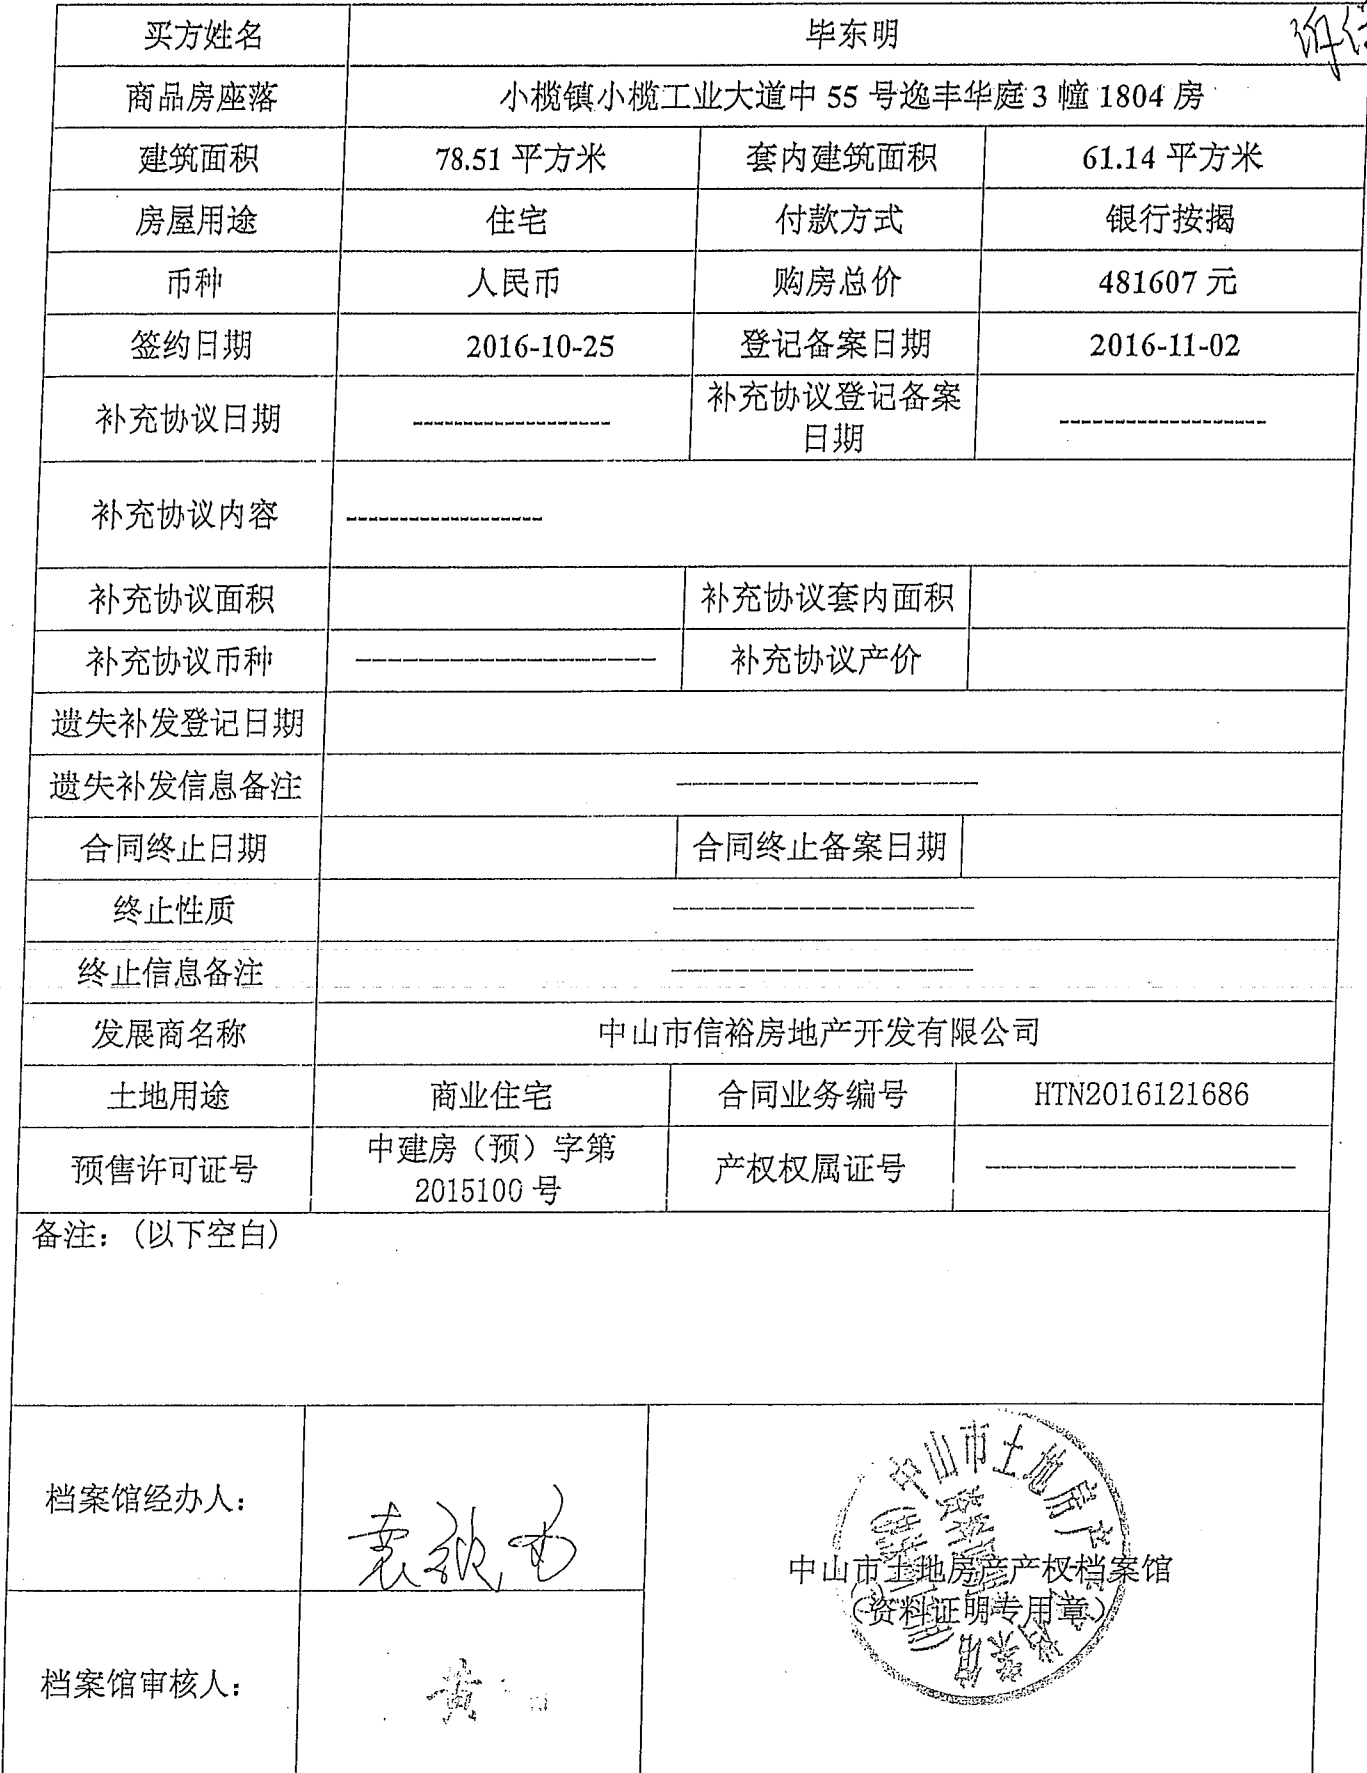 买方姓名 毕东明
商品房座落 小榄镇小榄工业大道中 55 号逸丰华庭 3 幢 1804 房
建筑面积 78.51 平方米 套内建筑面积 61.14 平方米
房屋用途 住宅 付款方式 银行按揭
币种 人民币 购房总价 481607 元
签约日期 2016-10-25 登记备案日期 2016-11-02
补充协议日期 ------------------- 补充协议登记备案
日期 -------------------
补充协议内容 -------------------
补充协议面积 补充协议套内面积
补充协议币种 ------------------- 补充协议产价
遗失补发登记日期
遗失补发信息备注 -------------------
合同终止日期 合同终止备案日期
终止性质 -------------------
终止信息备注 -------------------
发展商名称 中山市信裕房地产开发有限公司
土地用途 商业住宅 合同业务编号 HTN2016121686
预售许可证号 中建房（预）字第
2015100 号 产权权属证号 -------------------
备注：(以下空白)
档案馆经办人：
中山市土地房产产权档案馆
（资料证明专用章）
档案馆审核人： 黄